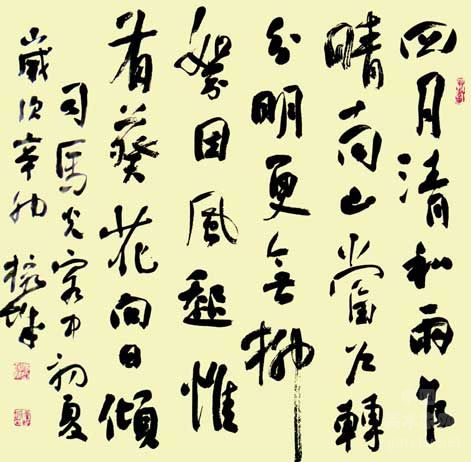 四月清和雨乍
晴南山當户轉
分明更無柳
絮因風起惟
有葵花向日傾
司馬光客中初夏
歲次辛卯